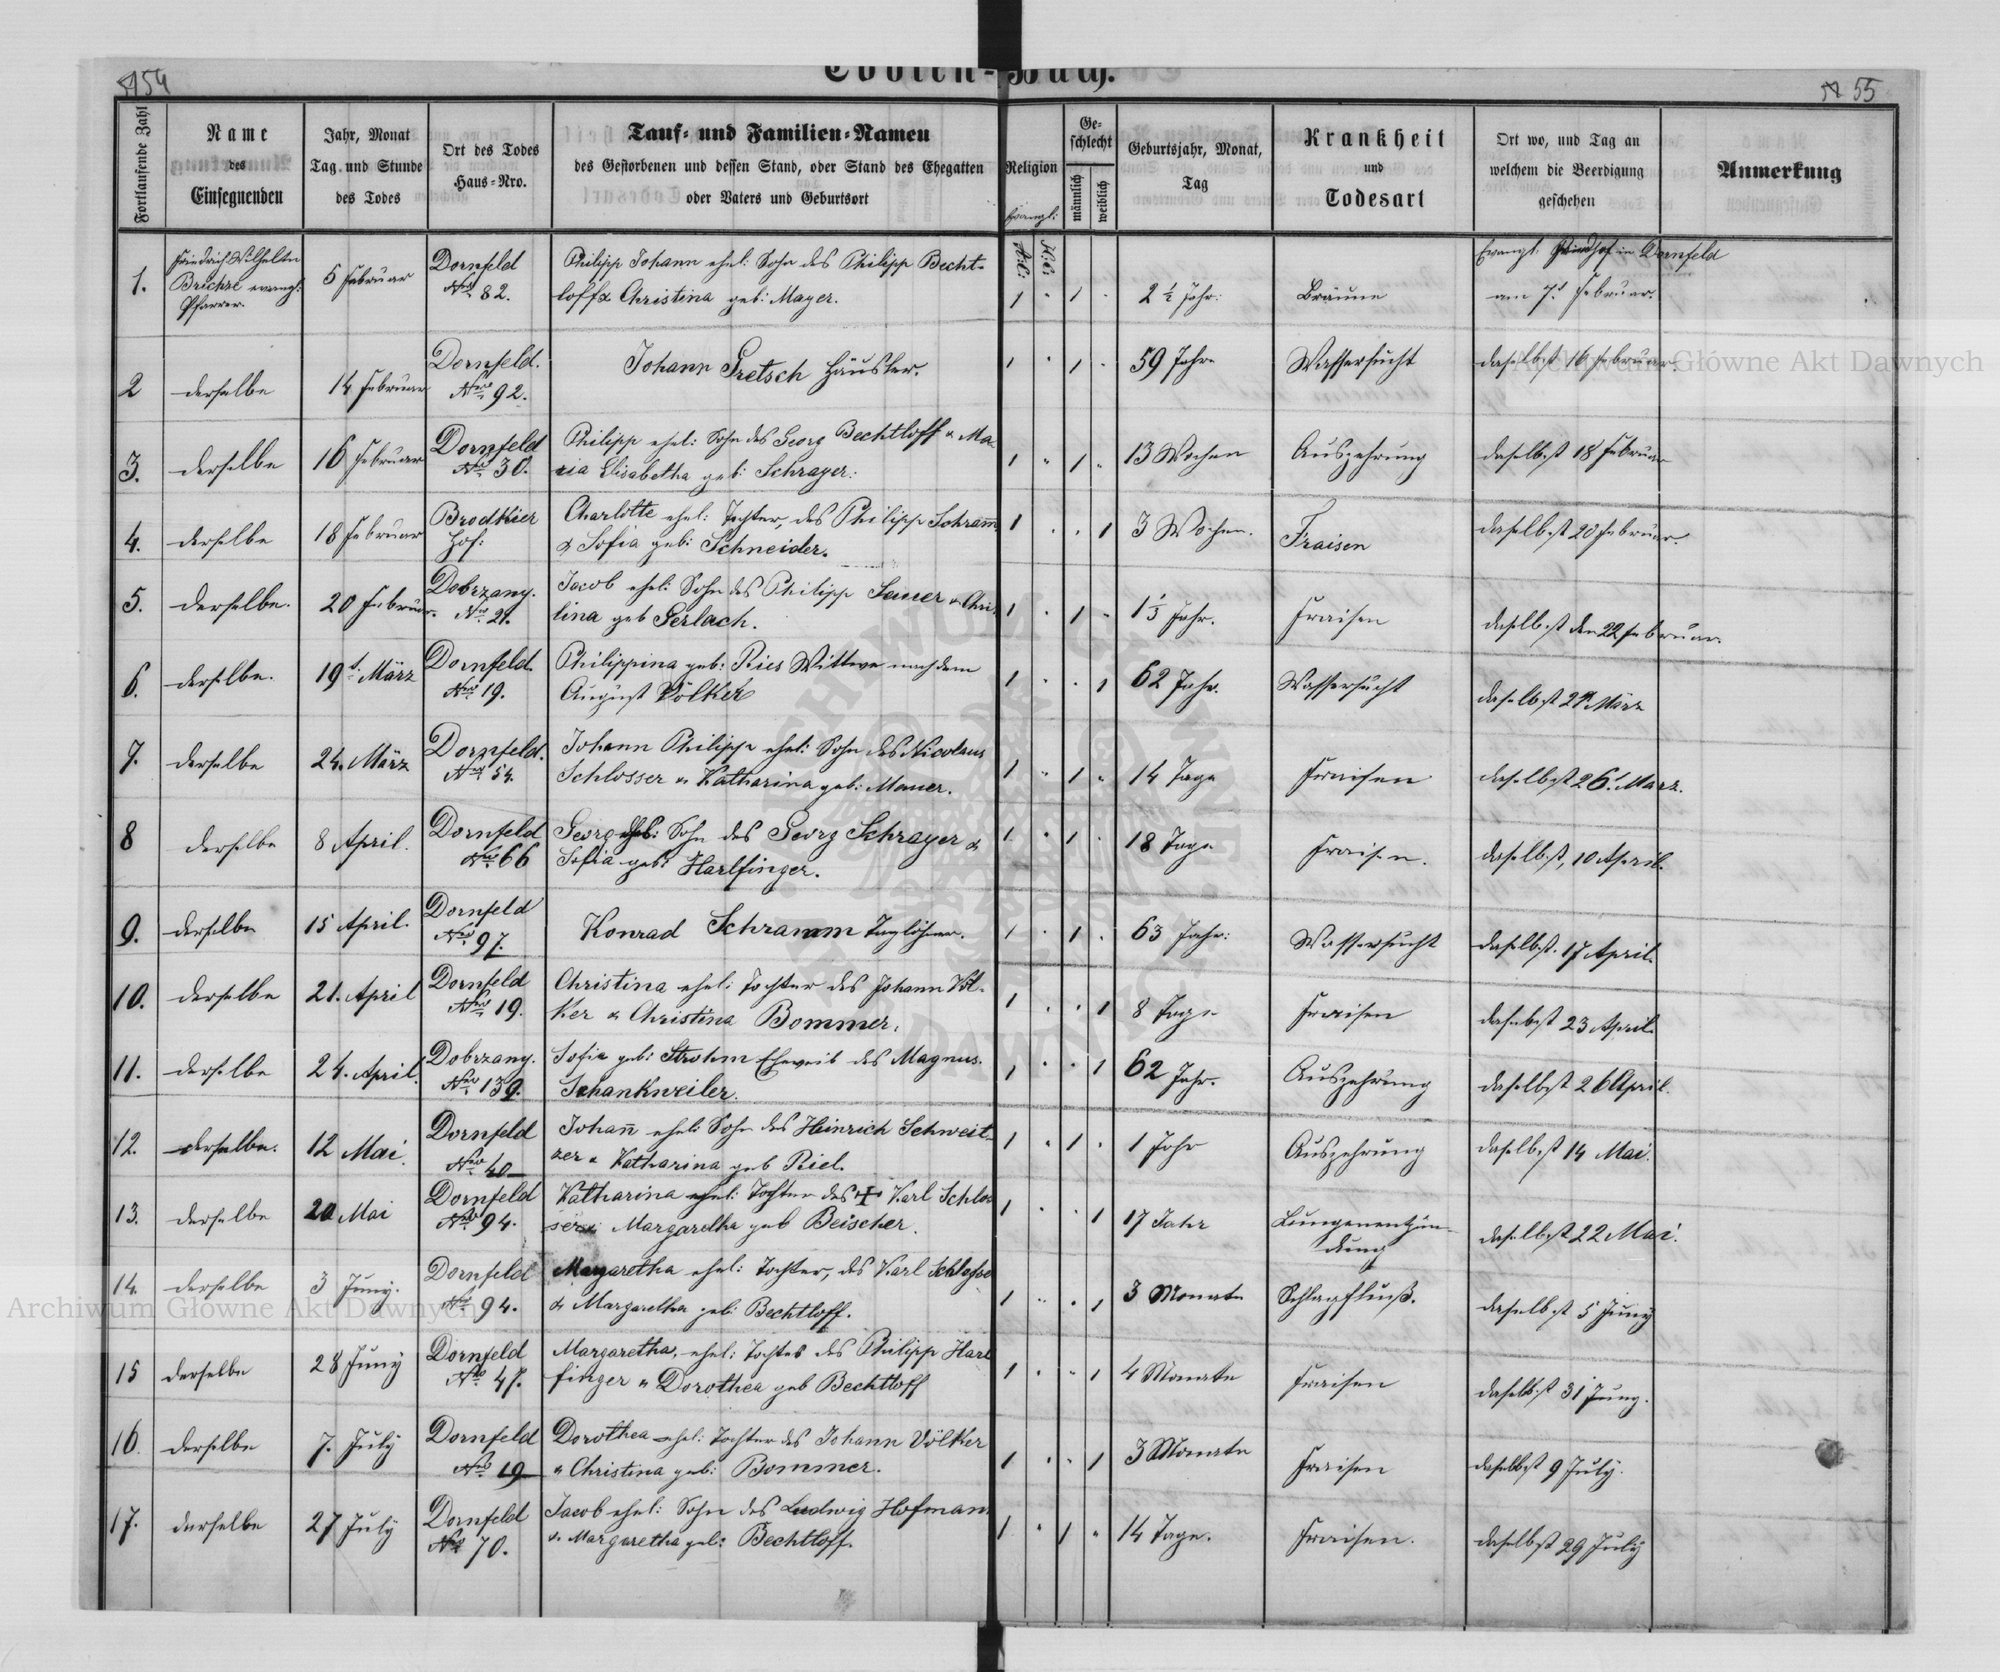 Todten-Buch.
54
55
Fortlaufende Zahl
Name
des
Einsegnenden
Jahr, Monat
Tag und Stunde
des Todes
Ort des Todes
Haus-Nro.
Tauf- und Familien-Namen
des Gestorbenen und dessen Stand, oder Stand des Ehegatten
oder Vaters und Geburtsort
Religion
Evangl:
A.C.
H.C.
Ge-
schlecht
männlich
weiblich
Geburtsjahr, Monat,
Tag
Krankheit
und
Todesart
Ort wo, und Tag an
welchem die Beerdigung
geschehen
Anmerkung
1.
Friedrich Wilhelm
evangl:
Pfarrer.
5 Februar
Dornfeld
Nro 82.
Philipp Johann ehel: Sohn des Philipp Becht-
loff & Christina geb: Mayer.
1 . 1 .
2 ½ Jahr:
Bräune
Evangl. Friedhof in Dornfeld
am 7t Februar.
2
derselbe
14 Februar
Dornfeld.
Nro 92.
Johann Gretsch Häusler.
1 . 1 .
59 Jahre
Wassersucht
daselbst 16 Februar.
3.
derselbe
16 Februar
Dornfeld
Nro 30.
Philipp ehel: Sohn des Georg Bechtloff & Ma-
ria Elisabetha geb: Schrayer.
1 . 1 .
13 Wochen
Auszehrung
daselbst 18 Februar
4.
derselbe
18 Februar
Brodkier
Hof:
Charlotte ehel: Tochter, des Philipp Schram̅
& Sofia geb: Schneider.
1 . . 1
3 Wochen.
Fraisen
daselbst 20 Februar.
5.
derselbe.
20 Februar.
Dobrzany.
Nro 21.
Jacob ehel: Sohn des Philipp & Chris-
tina geb Gerlach.
1 . 1 .
Jahr.
Fraisen
daselbst den 22 Februar.
6.
derselbe.
19t März
Dornfeld.
Nro 19.
Philippina geb: Ries Wittwe nach dem
August Völker
1 . . 1
62 Jahr.
Wassersucht
daselbst 21 März
7.
derselbe
24. März
Dornfeld.
Nro 54.
Johann Philipp ehel: Sohn des Nicolaus
Schlosser & Katharina geb: Mauer.
1 . 1 .
14 Tage
Fraisen
daselbst 26t März.
8
derselbe
8 April.
Dornfeld
Nro 66
Georg ehel: Sohn des Georg Schrayer &
Sofia geb: Harlfinger.
1 . 1 .
18 Tage
Fraisen.
daselbst, 10 April.
9.
derselbe
15 April.
Dornfeld
Nro 97.
Konrad Schramm Taglöhner.
1 . 1 .
63 Jahr:
Wassersucht
daselbst. 17 April.
10.
derselbe
21. April
Dornfeld
Nro 19.
Christina ehel: Tochter des Johann Völ-
ker & Christina Bommer.
1 . . 1
8 Tage
Fraisen
daselbst 23 April.
11.
derselbe
24. April.
Dobrzany.
Nro 139.
Sofia geb: Strohm Eheweib des Magnus.
Schankweiler.
1 . . 1
62 Jahr.
Auszehrung
daselbst 26 April.
12.
derselbe.
12 Mai.
Dornfeld
Nro 40
Johan̅ ehel: Sohn des Heinrich Schweit-
zer & Katharina geb Riel.
1 . 1 .
1 Jahr
Auszehrung
daselbst 14 Mai.
13.
derselbe
20 Mai
Dornfeld
Nro 94.
Katharina ehel: Tochter des + Karl Schlos
ser & Margaretha geb Beischer.
1 . . 1
17 Jahr
Lungenentzün-
dung
daselbst 22 Mai.
14.
derselbe
3 Juny.
Dornfeld
Nro 94.
Margaretha ehel: Tochter, des Karl Schlosser
& Margaretha geb: Bechtloff.
1 . . 1
3 Monate
Schlagfluß.
daselbst 5 Juny
15
derselbe
28 Juny
Dornfeld
Nro 47.
Margaretha, ehel: Tochter des Philipp Harl
finger & Dorothea geb Bechtloff
1 . . 1
4 Monate
Fraisen
daselbst 31 Juny.
16.
derselbe
7. July
Dornfeld
Nro 19
Dorothea ehel: Tochter des Johann Völker
& Christina geb: Bommer.
1 . . 1
3 Monate
Fraisen
daselbst 9 July.
17.
derselbe
27 July
Dornfeld
Nro 70.
Jacob ehel: Sohn des Ludwig Hofmann
& Margaretha geb: Bechtloff.
1 . 1 .
14 Tage.
Fraisen.
daselbst 29 July
Archiwum Główne Akt Dawnych
Archiwum Główne Akt Dawnych